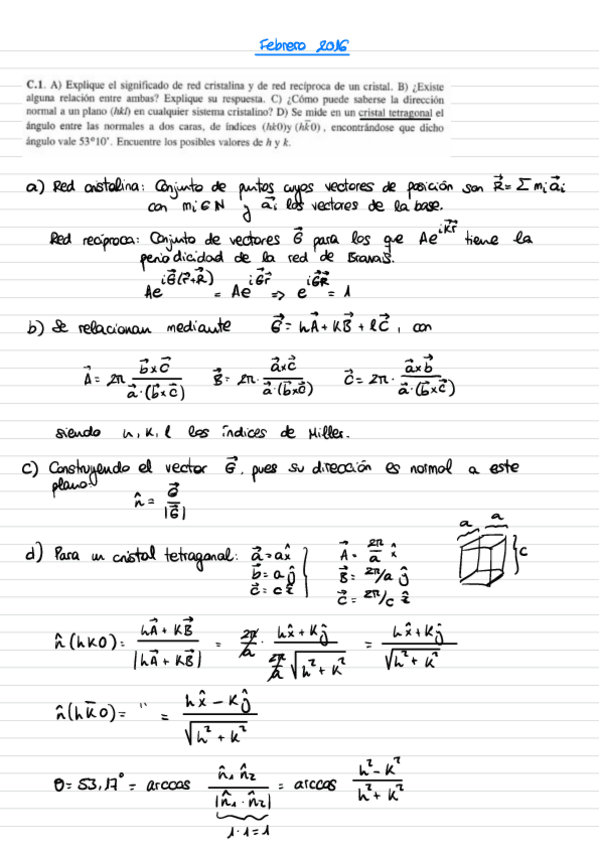 Febrero 2016
C.1. A) Explique el significado de red cristalina y de red recíproca de un cristal. B) ¿Existe
alguna relación entre ambas? Explique su respuesta. C) ¿Cómo puede saberse la dirección
normal a un plano (hkl) en cualquier sistema cristalino? D) Se mide en un cristal tetragonal el
ángulo entre las normales a dos caras, de índices (hk0)y (hk̄0) , encontrándose que dicho
ángulo vale 53°10'. Encuentre los posibles valores de h y k.
a) Red cristalina: Conjunto de puntos cuyos vectores de posición son R⃗ = Σ mᵢa⃗ᵢ
con mᵢ∈N y a⃗ᵢ los vectores de la base.
Red recíproca: Conjunto de vectores G⃗ para los que Ae^{iK⃗r⃗} tiene la
periodicidad de la red de Bravais.
Ae^{iG⃗(r⃗+R⃗)} = Ae^{iG⃗r⃗} => e^{iG⃗R⃗} = 1
b) Se relacionan mediante G⃗ = hA⃗ + KB⃗ + lC⃗, con
A⃗ = 2π b⃗×c⃗ / a⃗·(b⃗×c⃗) B⃗ = 2π· a⃗×c⃗ / a⃗·(b⃗×c⃗) C⃗ = 2π· a⃗×b⃗ / a⃗·(b⃗×c⃗)
siendo h, k, l los índices de Miller.
c) Construyendo el vector G⃗, pues su dirección es normal a este
plano:
n̂ = G⃗ / |G⃗|
d) Para un cristal tetragonal: a⃗ = ax̂ A⃗ = 2π/a x̂ a a
b⃗ = aĵ B⃗ = 2π/a ĵ c
c⃗ = cẑ C⃗ = 2π/c ẑ
n̂(hk0) = hA⃗ + KB⃗ / |hA⃗ + KB⃗| = 2π/a · hx̂ + Kĵ / 2π/a √h² + k² = hx̂ + Kĵ / √h² + k²
n̂(hk̄0) = " = hx̂ − Kĵ / √h² + k²
θ = 53,17° = arccos n̂₁ n̂₂ / |n̂₁ · n̂₂| = arccos h² − k² / h² + k²
1·1=1